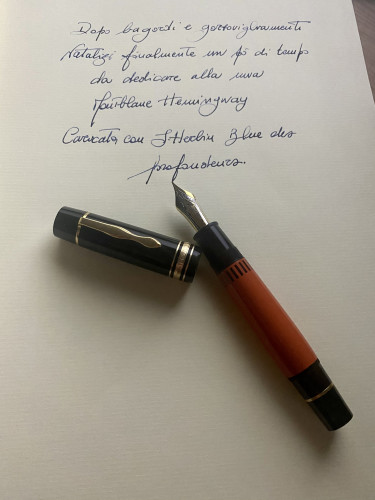 Dopo bagordi e gozzovigliamenti
Natalizi finalmente un pò di tempo
da dedicare alla mia
Montblanc Hemingway
Caricata con J Herbin Blue des
profondeurs.